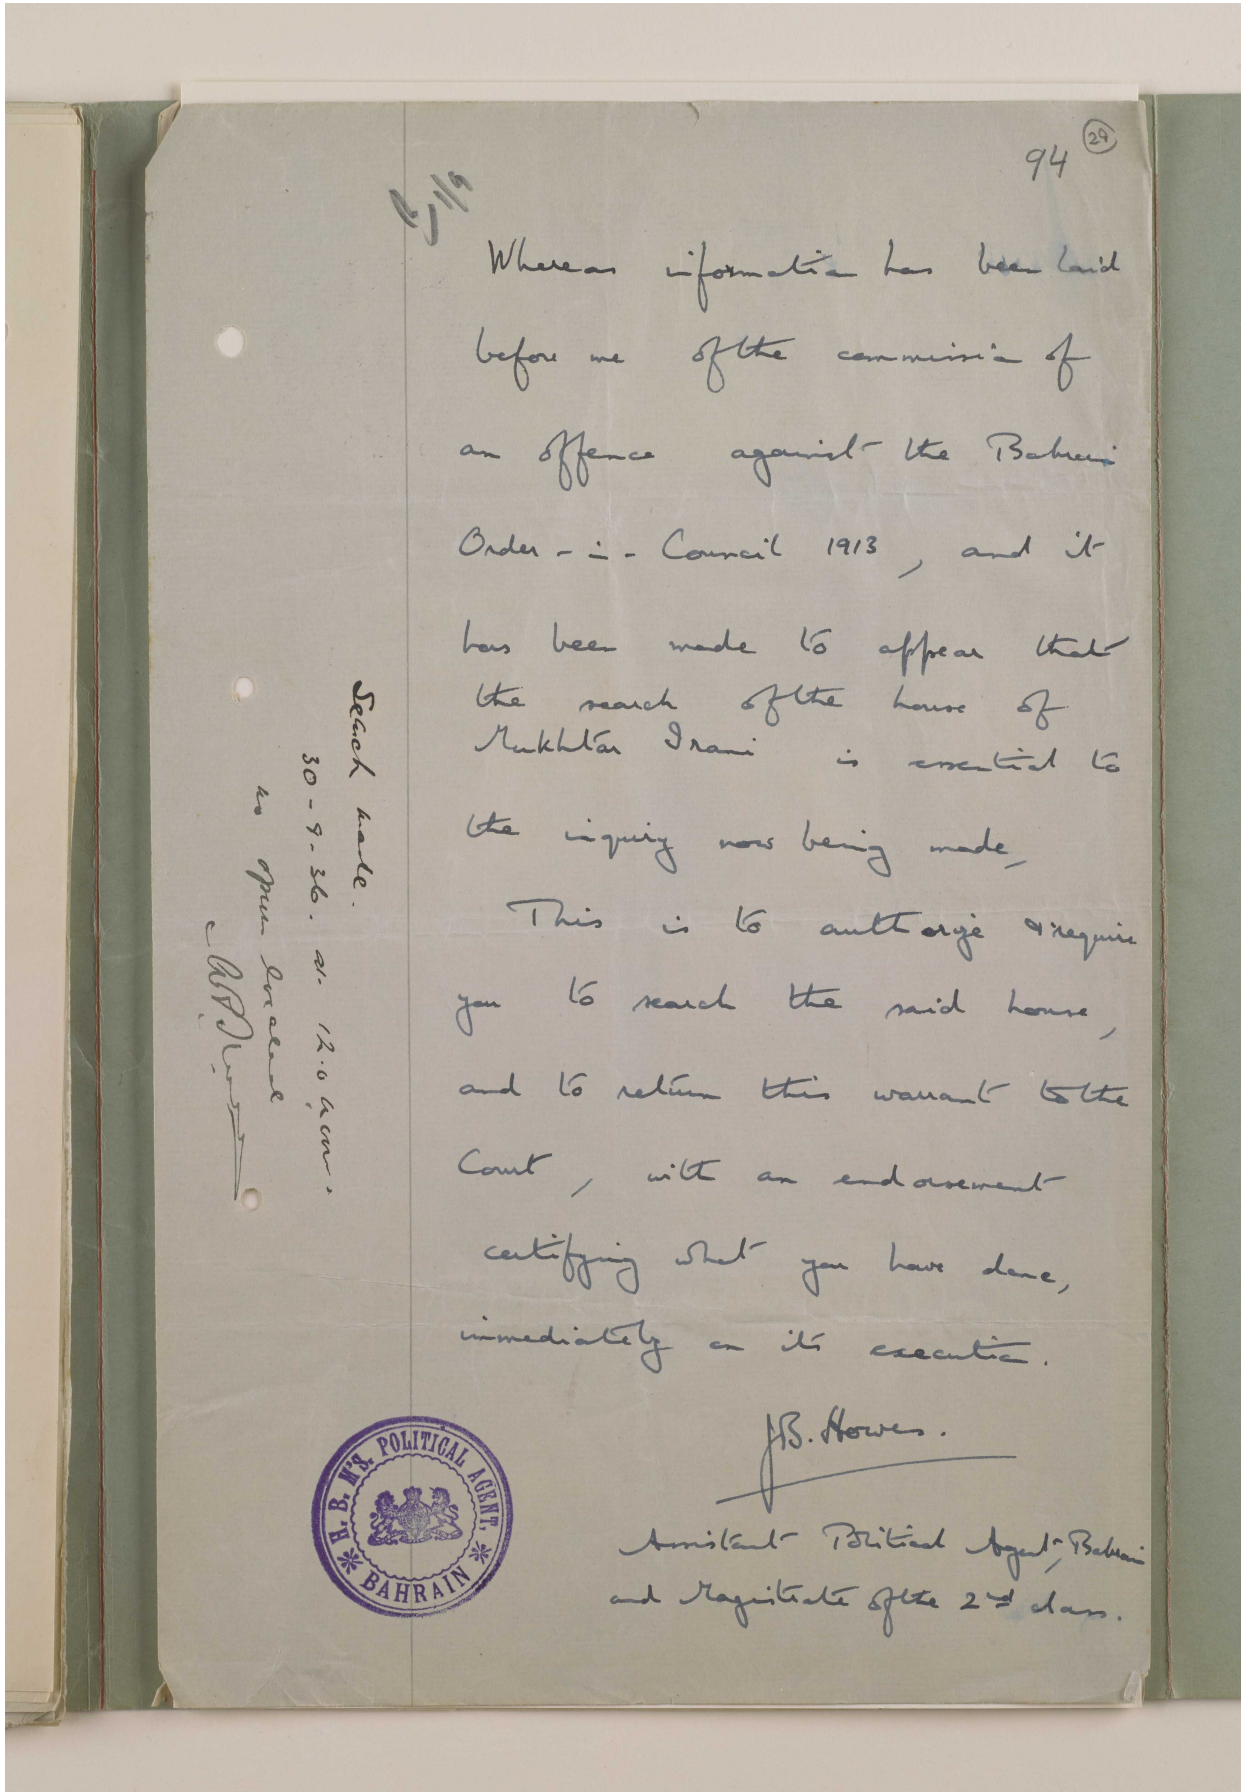 94
29
Whereas information has been laid
before me of the commission of
an offence against the Bahrain
Order-in-Council 1913, and it
has been made to appear that
the search of the house of
Mukhtar Irani is essential to
the inquiry now being made,
This is to authorize & require
you to search the said house,
and to return this warrant to the
Court, with an endorsement
certifying what you have done,
immediately on its execution.
J.B. Howes.
Assistant Political Agent, Bahrain
and Magistrate of the 2nd class.
H. B. M'S. POLITICAL AGENT.
BAHRAIN
Search made.
30-9-36. at 12.0 a.m.
no opium located